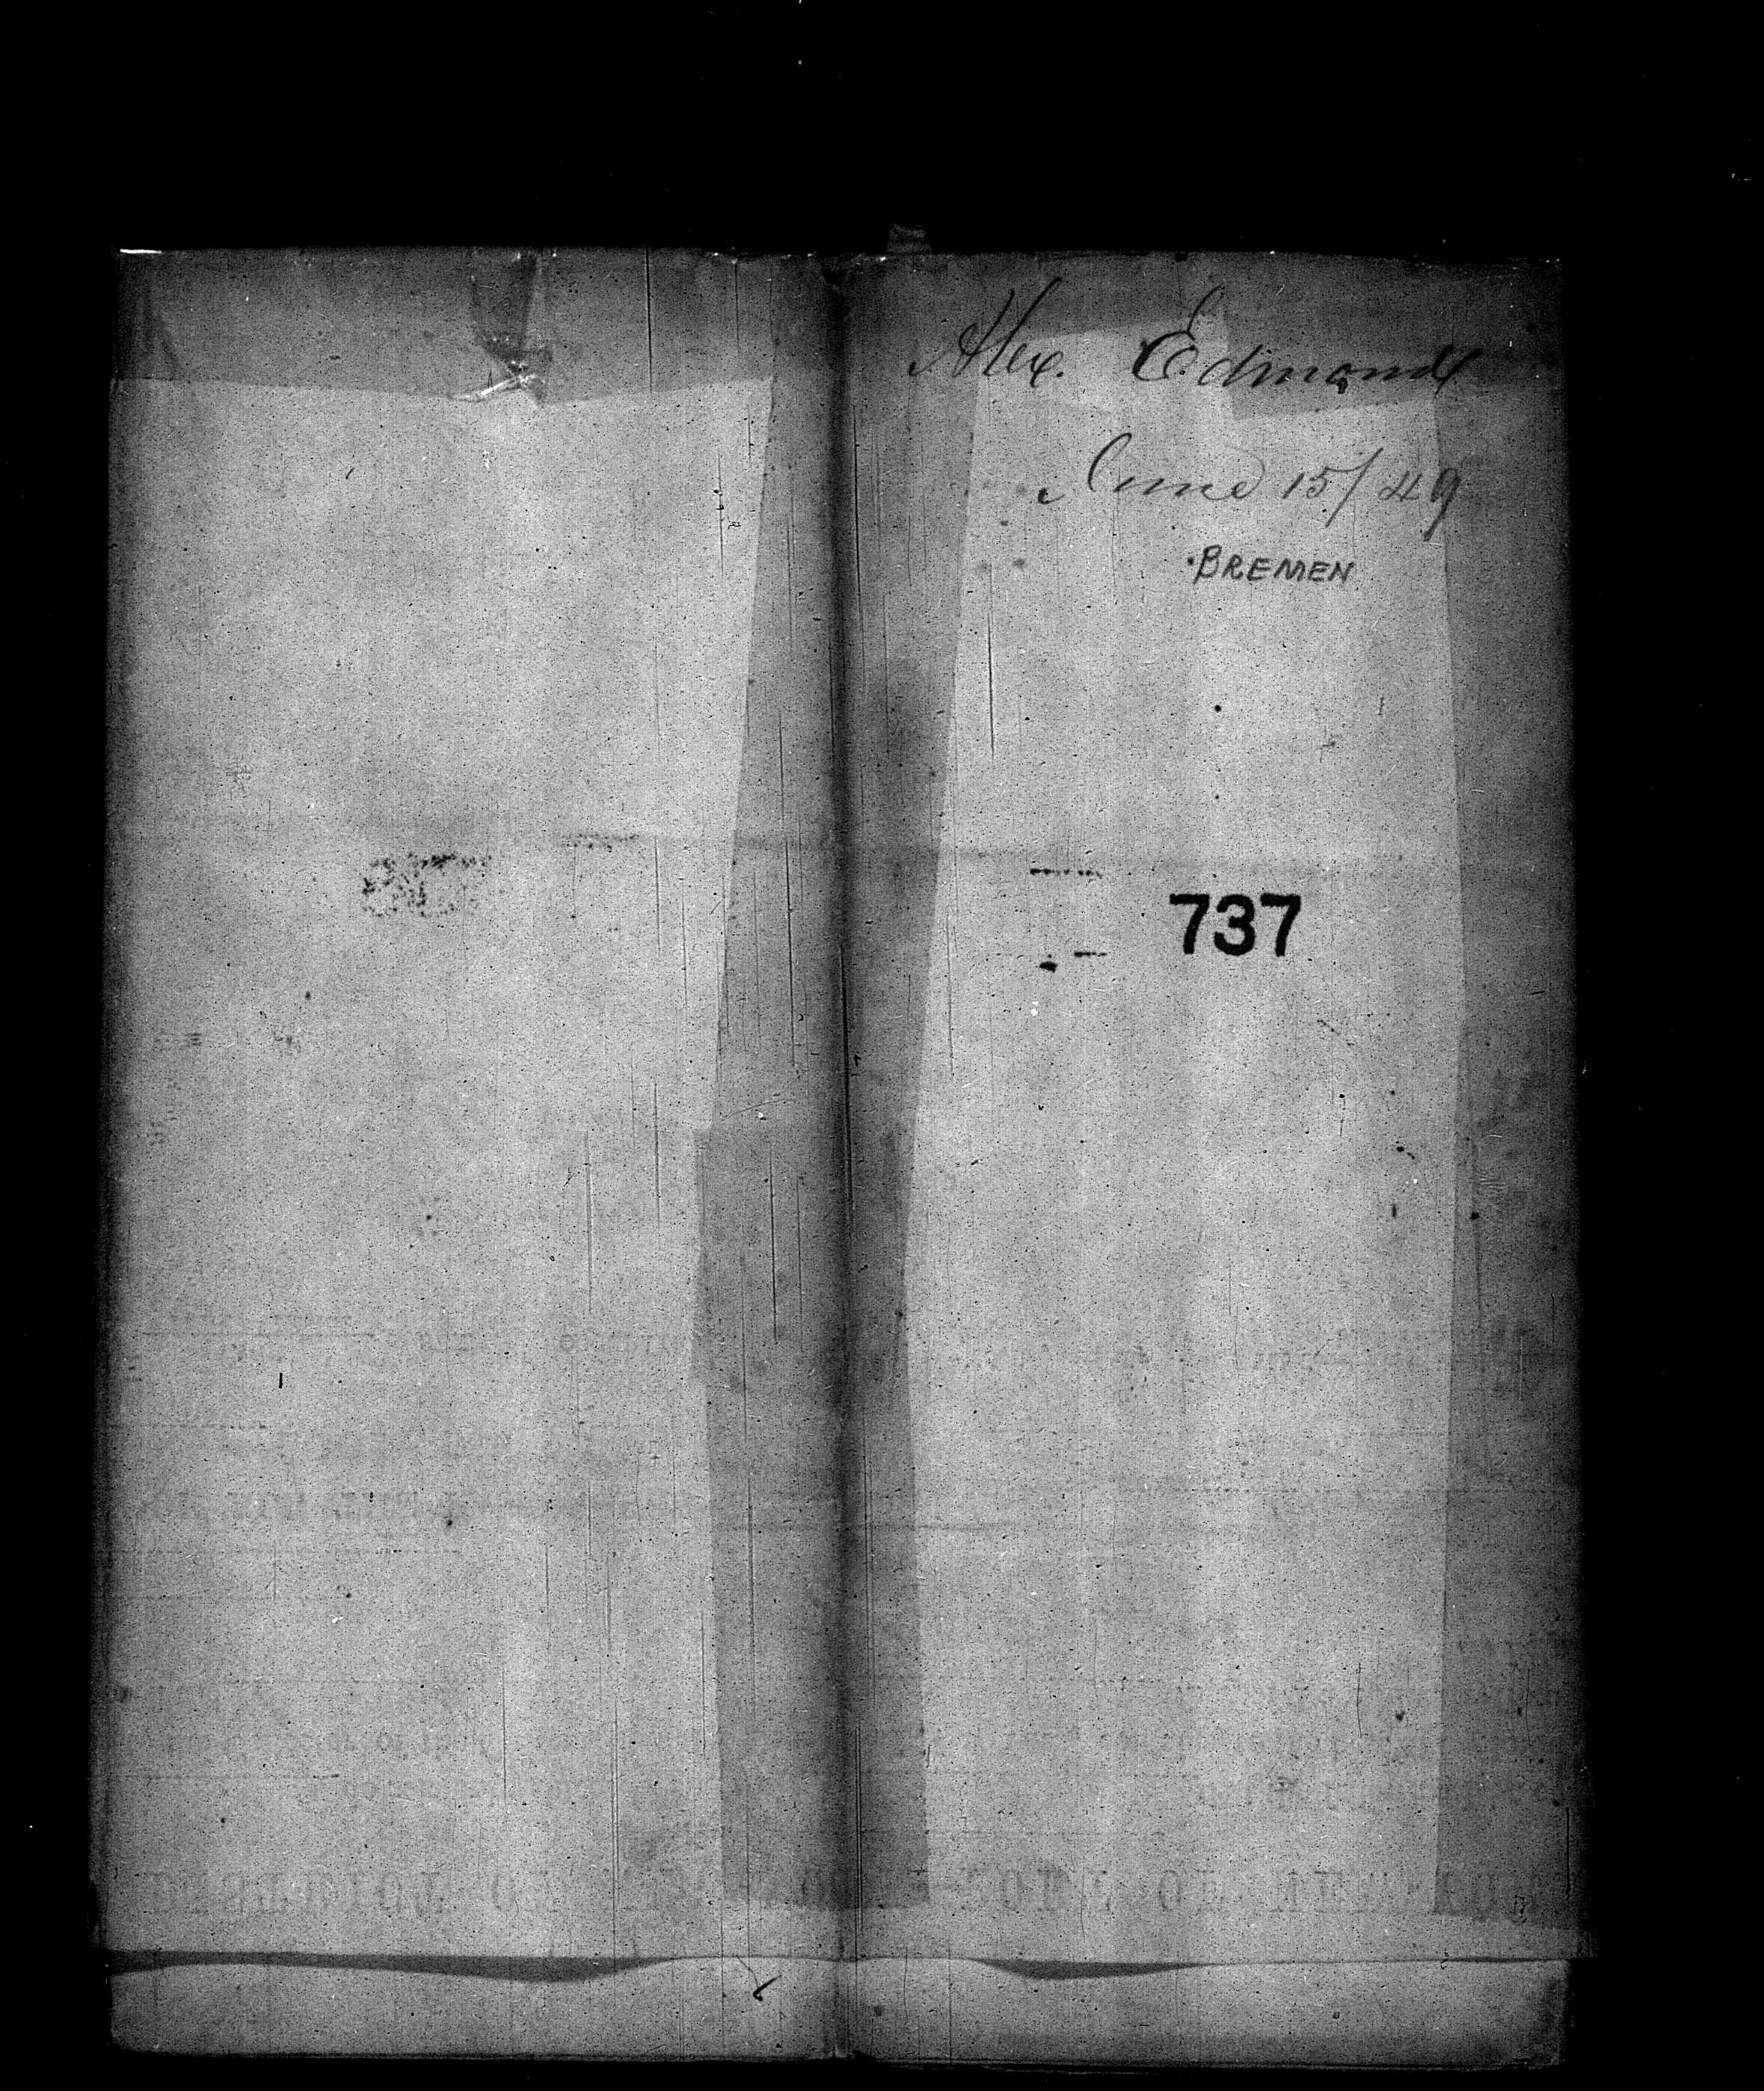 Alex. Edmond
June 15/49
BREMEN
737